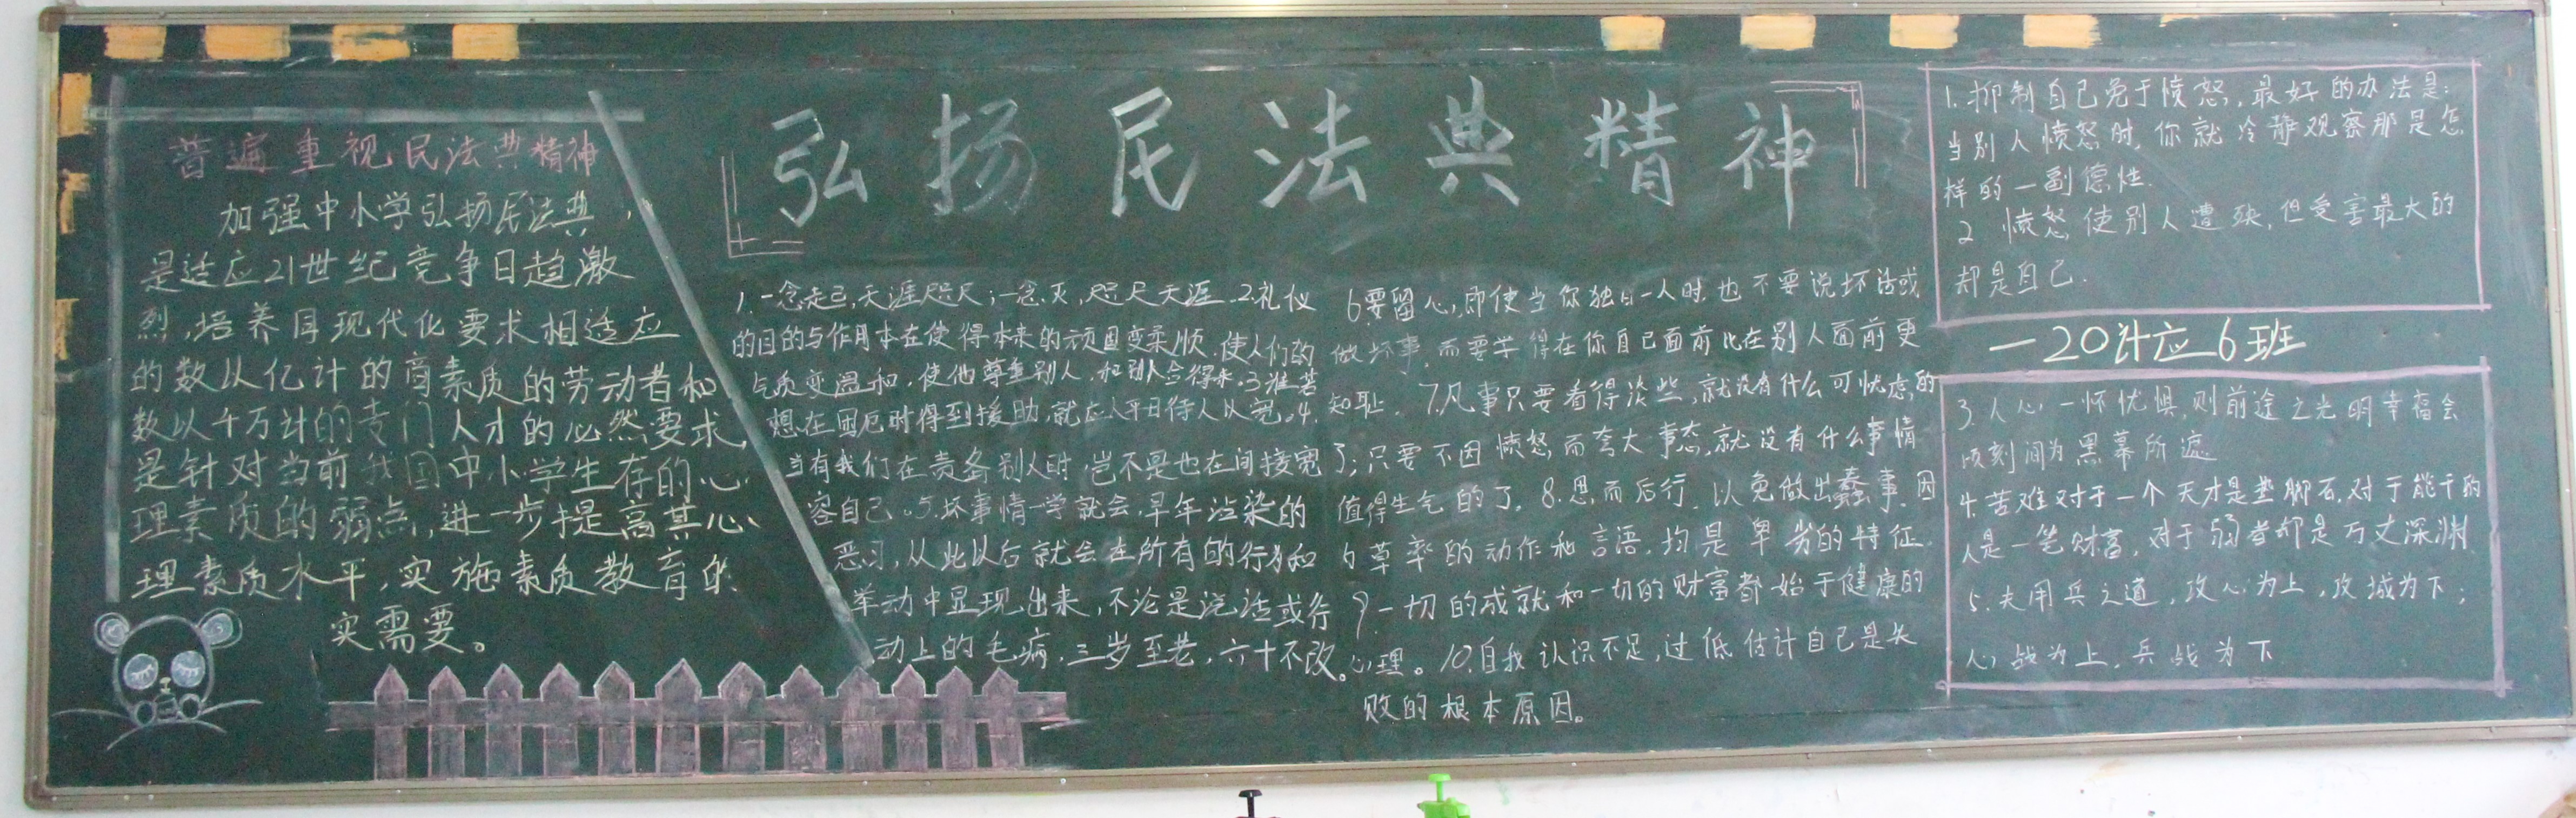 弘扬民法典精神
普遍重视民法典精神
加强中小学弘扬民法典，
是适应21世纪竞争日趋激
烈，培养同现代化要求相适应
的数以亿计的高素质的劳动者和
数以千万计的专门人才的必然要求，
是针对当前我国中小学生存的心
理素质的弱点，进一步提高其心
理素质水平，实施素质教育的
实需要。
1.一念走已，天涯咫尺；一念灭，咫尺天涯.2.礼仪
的目的与作用本在使得本来的顽固变柔顺.使人们的
气质变温和，使他尊重别人，和别人合得来.3.谁若
想在困厄时得到援助，就应从平日待人以宽。4.
当有我们在责备别人时，岂不是也在间接宽
容自己。5.坏事情一学就会，早年沾染的
恶习，从此以后就会在所有的行为和
举动中显现出来，不论是说话或行
动上的毛病，三岁至老，六十不改。
6要留心，即使当你独自一人时，也不要说坏话或
做坏事，而要学得在你自己面前比在别人面前更
知耻. 7.凡事只要看得淡些，就没有什么可忧虑的
了；只要不因愤怒而夸大事态，就没有什么事情
值得生气的了. 8.思而后行，以免做出蠢事.因
为草率的动作和言语，均是卑劣的特征.
9.一切的成就和一切的财富都始于健康的
心理。10.自我认识不足，过低估计自己是失
败的根本原因。
1.抑制自己免于愤怒，最好的办法是：
当别人愤怒时，你就冷静观察那是怎
样的一副德性.
2.愤怒使别人遭殃，但受害最大的
却是自己.
—20计应6班
3.人心一怀忧惧，则前途之光明幸福会
顷刻间为黑幕所遮
4.苦难对于一个天才是垫脚石，对于能干的
人是一笔财富，对于弱者却是万丈深渊.
5.夫用兵之道，攻心为上，攻城为下；
心战为上，兵战为下